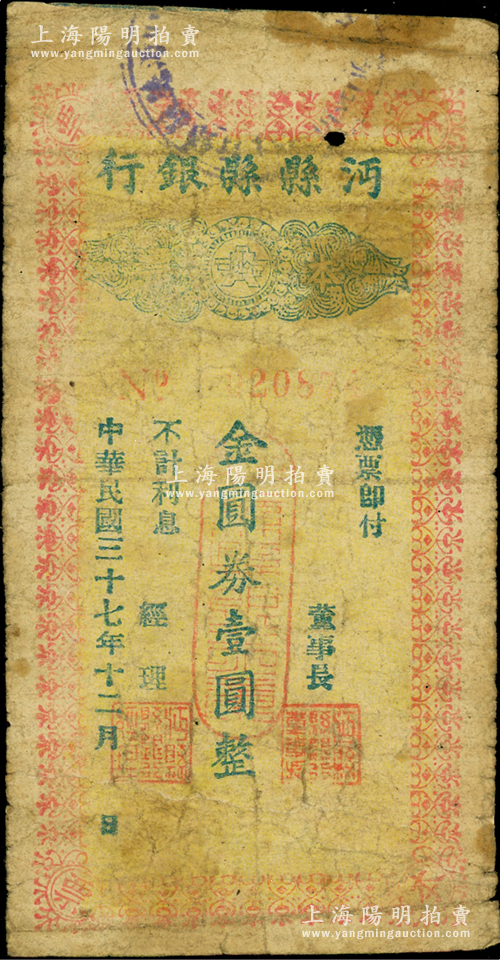 上海陽明拍賣
www.yangmingauction.com
沔縣縣銀行
本
No
憑票即付
董事長
金圓券壹圓整
不計利息
經理
中華民國三十七年十二月 日
上海陽明拍賣
www.yangmingauction.com
上海陽明拍賣
www.yangmingauction.com